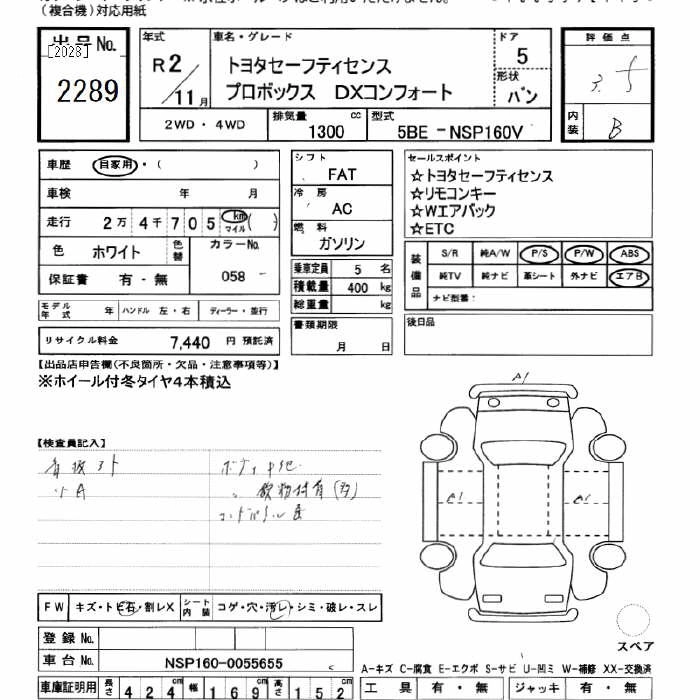 (複合機)対応用紙
出品No.
[2028]
2289
年式 R2/11月
車名・グレード
トヨタセーフティセンス
プロボックス DXコンフォート
ドア 5
形状 バン
評価点
3.5
内装 B
2WD・4WD
排気量 1300 cc
型式 5BE-NSP160V
車歴 自家用・( )
車検 年 月
走行 2万4千705 km マイル ( )
色 ホワイト 色替 カラーNo. 058
保証書 有・無
モデル年式 年 ハンドル 左・右 ディーラー・並行
リサイクル料金 7,440 円 預託済
シフト FAT
冷房 AC
燃料 ガソリン
乗車定員 5 名
積載量 400 kg
総重量 kg
書類期限
月 日
セールスポイント
☆トヨタセーフティセンス
☆リモコンキー
☆Wエアバック
☆ETC
装備品
S/R 純A/W P/S P/W ABS
純TV 純ナビ 革シート 外ナビ エアB
ナビ型番:
後日品
【出品店申告欄(不良箇所・欠品・注意事項等)】
※ホイール付冬タイヤ4本積込
【検査員記入】
A1
A1
FW キズ・トビ石・割レX シート内装 コゲ・穴・汚レ・シミ・破レ・スレ
登録No.
車台No. NSP160-0055655
スペア
A-キズ C-腐食 E-エクボ S-サビ U-凹ミ W-補修 XX-交換済
車庫証明用 長さ 424cm 幅 169cm 高さ 152cm
工具 有・無 ジャッキ 有・無